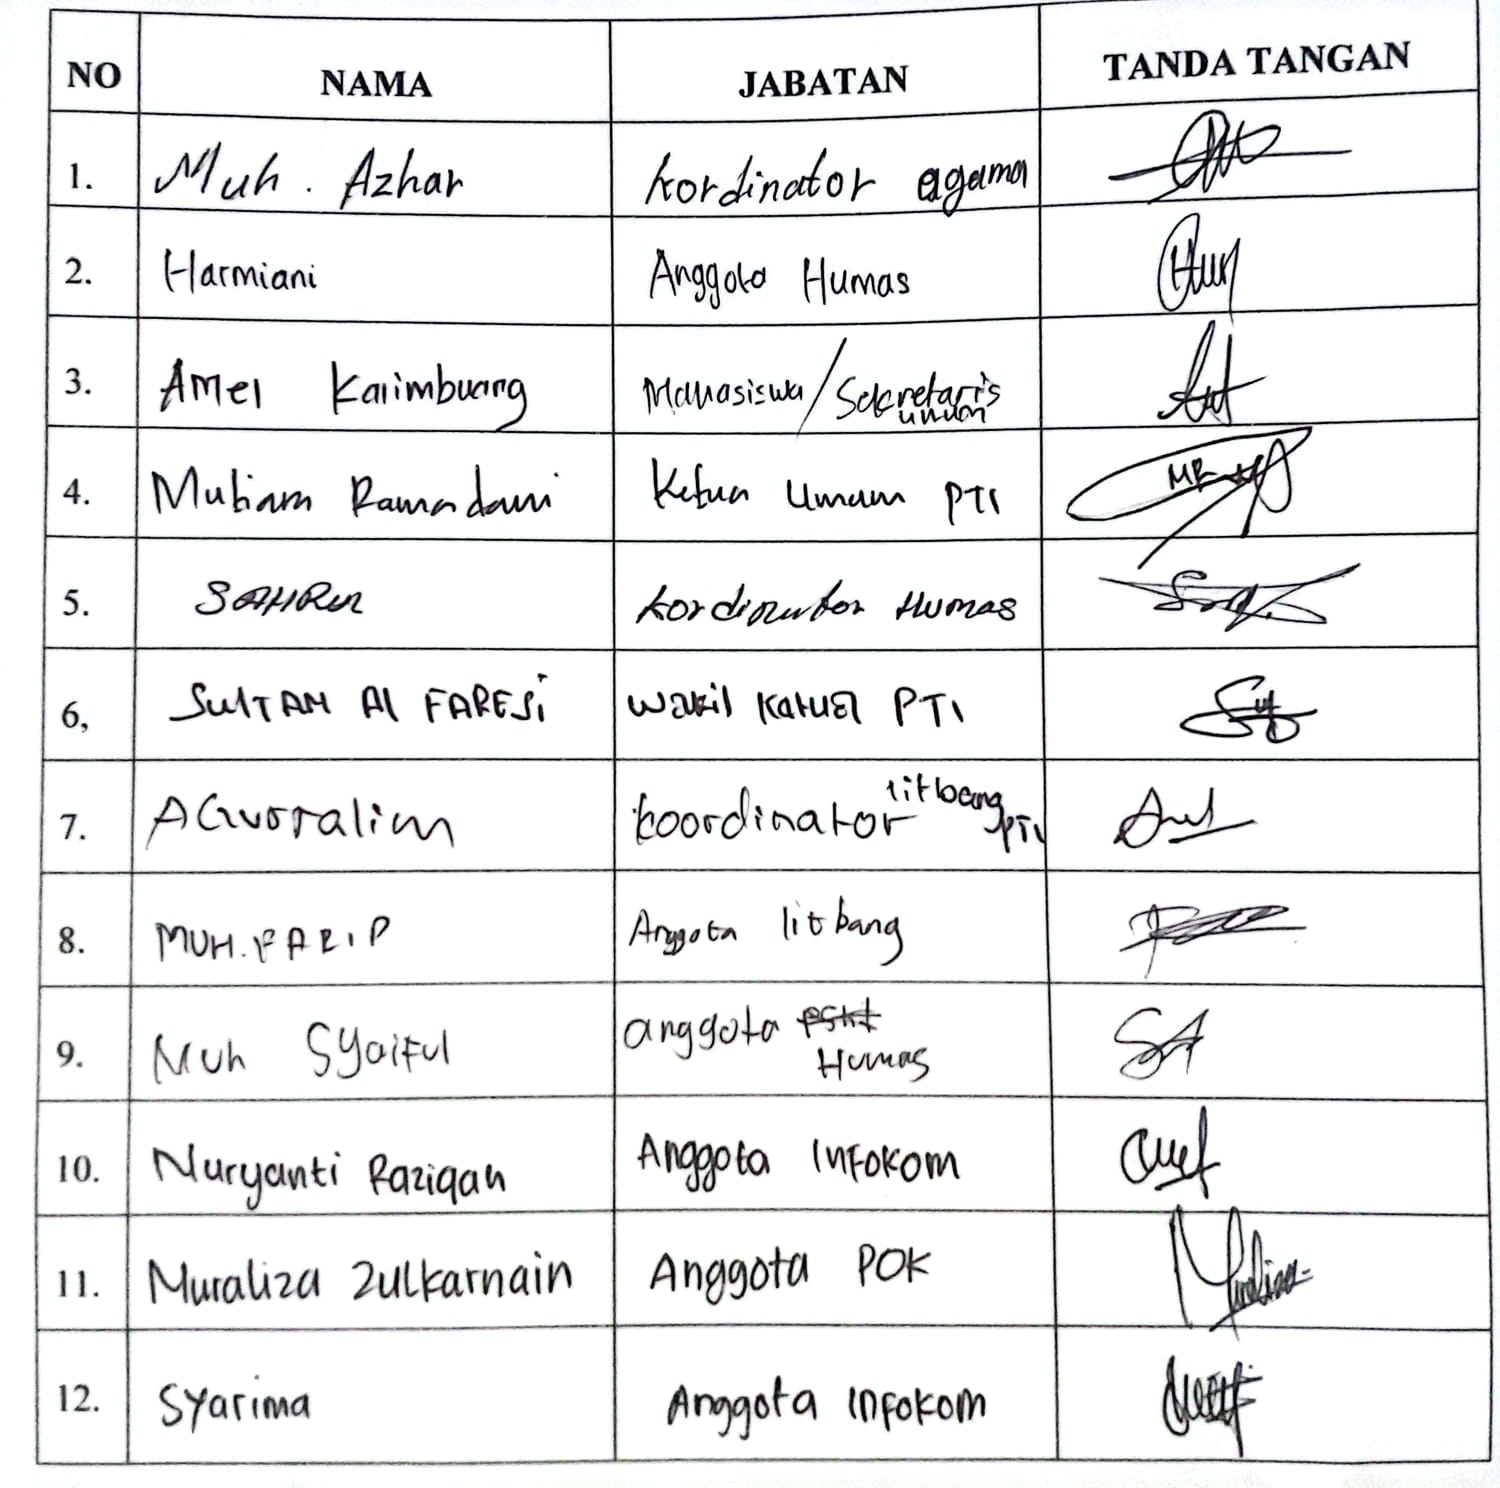 NO NAMA JABATAN TANDA TANGAN
1. Muh. Azhar kordinator agama
2. Harmiani Anggota Humas
3. Amel Karimbuang Mahasiswa/Sekretaris
umum
4. Ramadani Ketua Umum PTI
5. SAHRUL kordinator Humas
6, SULTAN Al FARESi wakil Katua PTI
7. koordinator litbang
PTI
8. MUH. FARID Anggota litbang
9. Muh Syaiful anggota
Humas
10. Nuryanti Raziqah Anggota INFOKOM
11. Muraliza Zulkarnain Anggota POK
12. Syarima Anggota INFOKOM